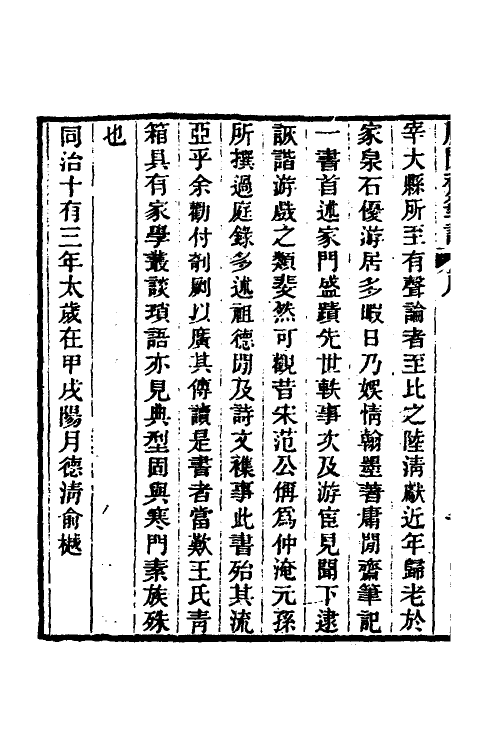 宰大縣所至有聲論者至比之陸清獻近年歸老於
家泉石優游居多暇日乃娛情翰墨著庸閒齋筆記
一書首述家門盛蹟先世軼事次及游宦見聞下逮
詼諧游戲之類斐然可觀昔宋范公偁為仲淹元孫
所撰過庭錄多述祖德閒及詩文襍事此書殆其流
亞乎余勸付剞劂以廣其傳讀是書者當歎王氏青
箱具有家學叢談瑣語亦見典型固與寒門素族殊
也
同治十有三年太歲在甲戌陽月德清俞樾